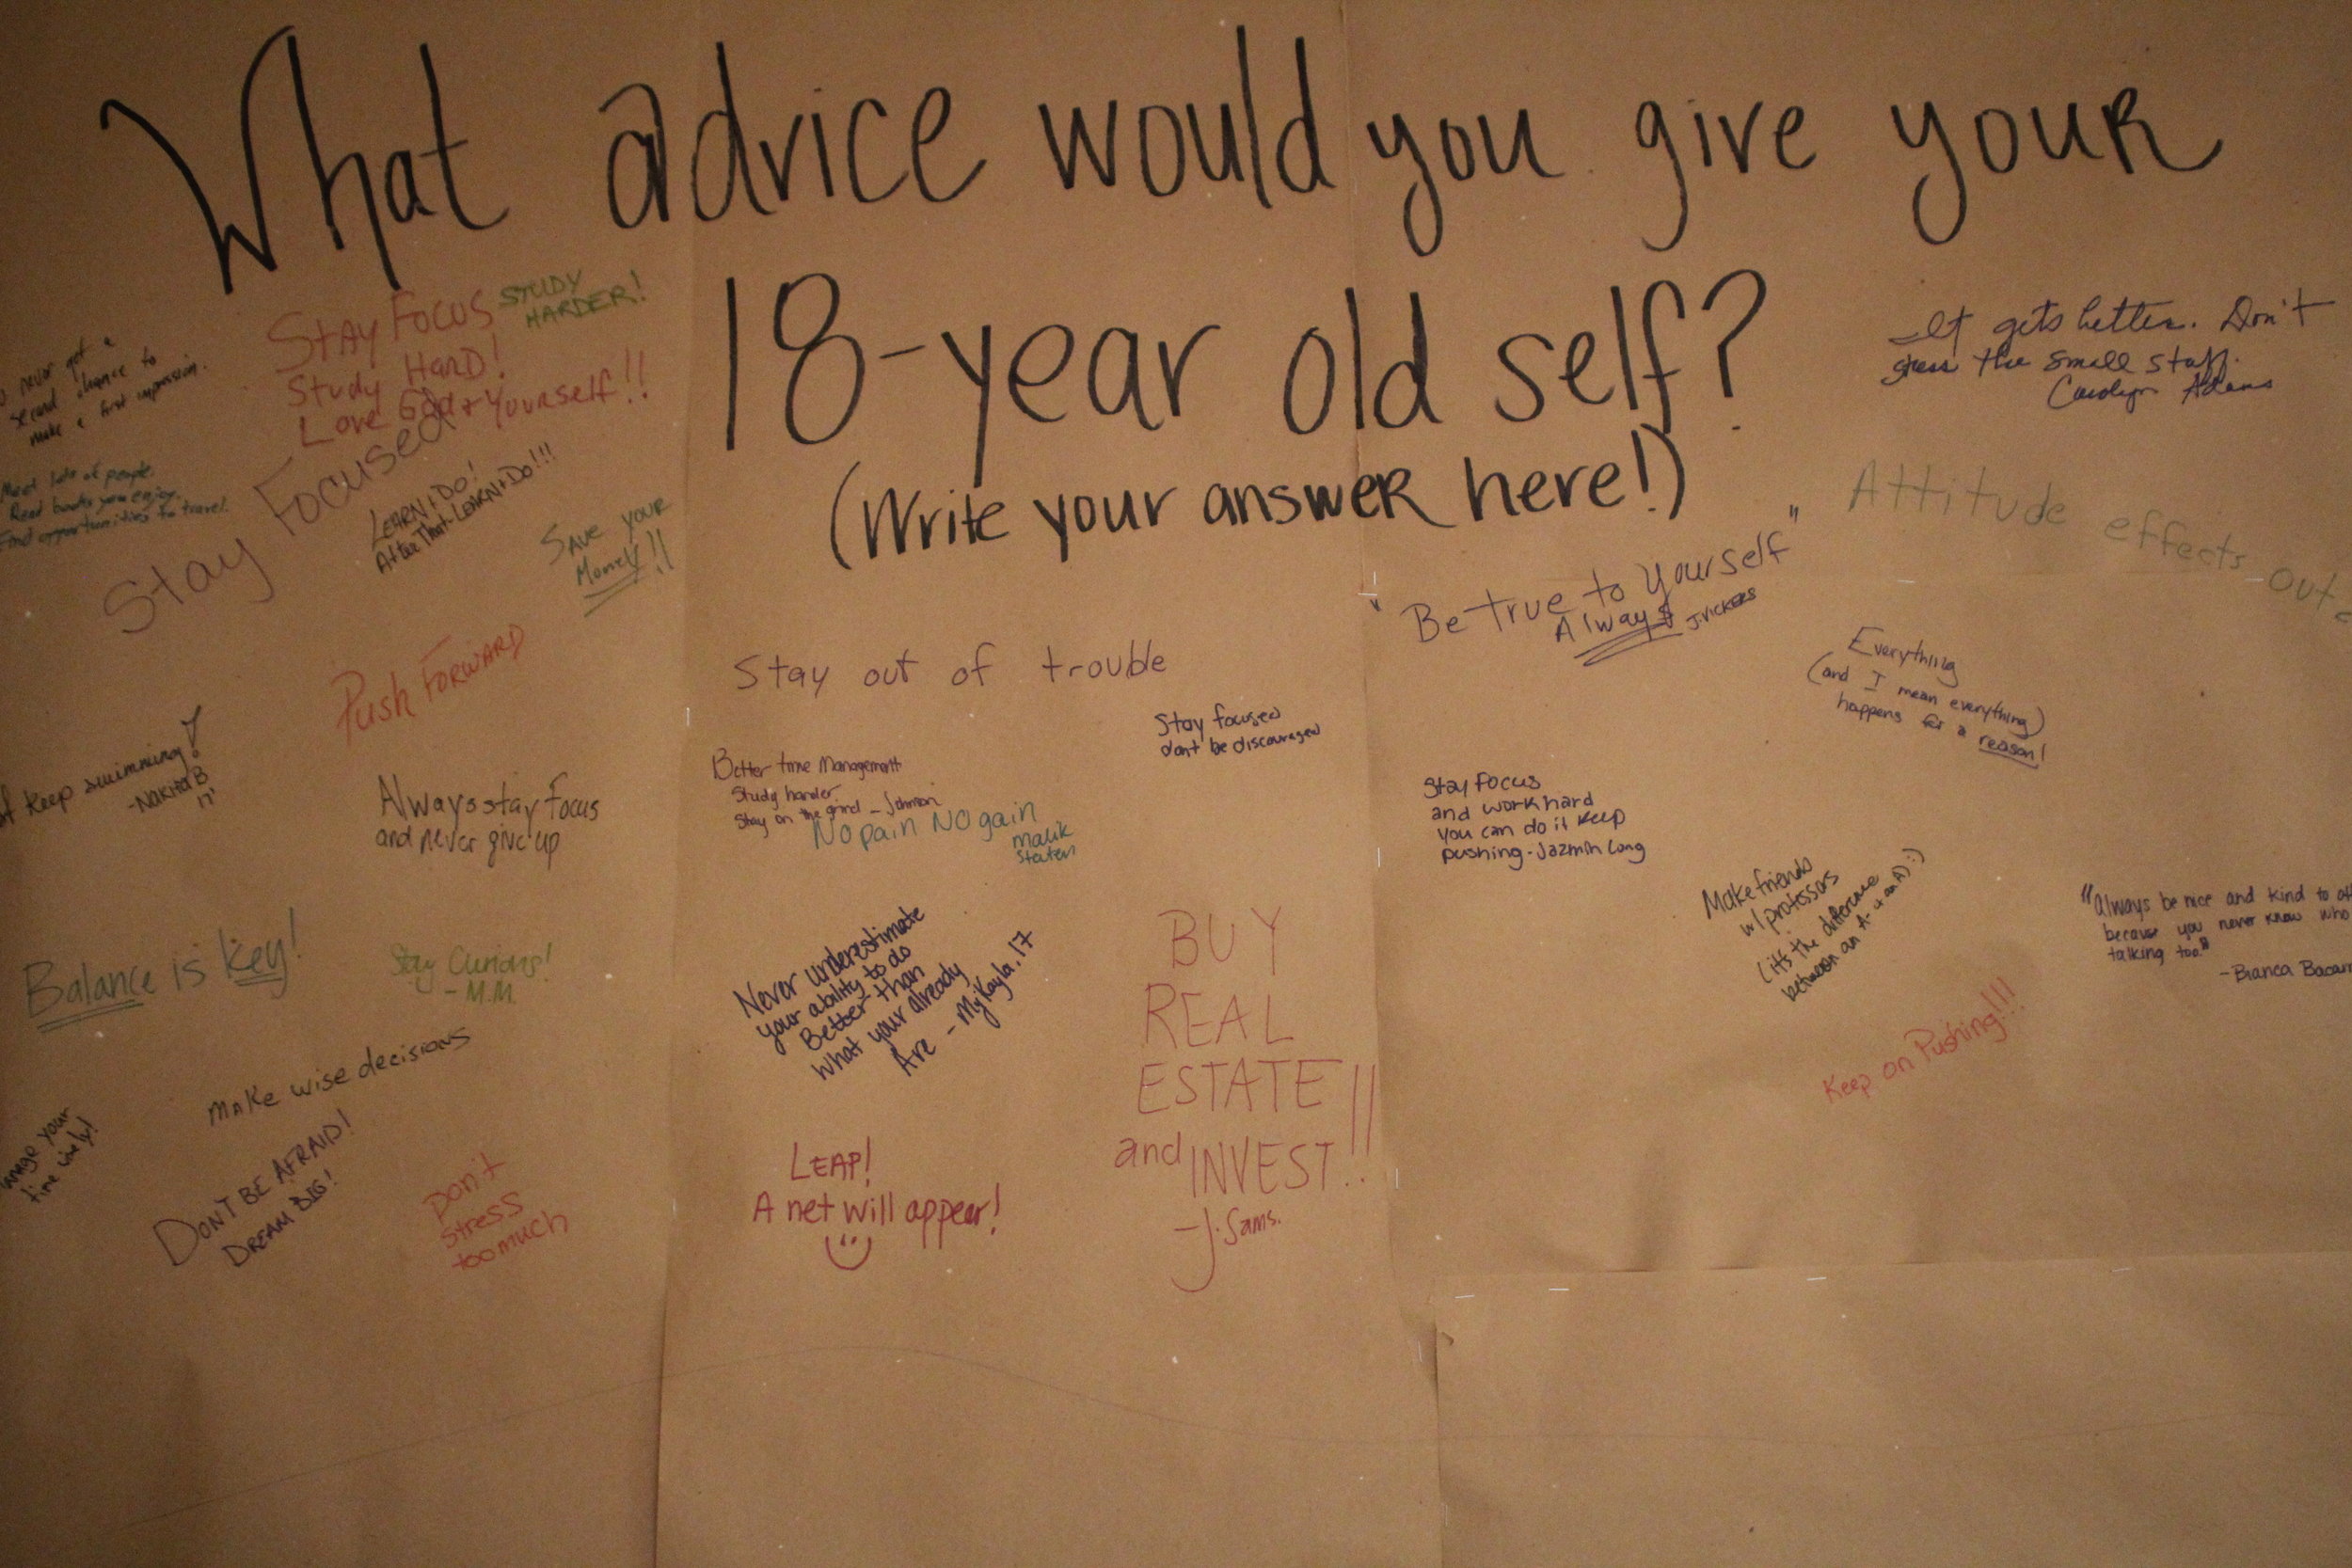 What advice would you give your
18-year old self?
(Write your answer here!)
never get a
second chance to
make a first impression.
STAY FOCUS
Study HARD!
Love God + Yourself!!
STUDY
HARDER!
Meet lots of people.
Read books you enjoy.
Find opportunities to travel.
Stay Focused
LEARN + DO!
After That-LEARN+DO!!!
SAVE YOUR
Money!!
Push FORWARD
keep swimming!
-Nakita B
17'
Always stay focus
and never give up
Balance is key!
Stay Curious!
- M.M.
Make wise decisions
your
time wisely!
DON'T BE AFRAID!
DREAM BIG!
Don't
stress
too much
Stay out of trouble
Stay focused
dont be discouraged
Better time Management
Study harder
Stay on the grind - Johnson
No pain NO gain
malik
staten
Never underestimate
your ability to do
Better than
what your already
Are - MyKayla, 17
BUY
REAL
ESTATE!!
and INVEST!!
-J. Sams.
LEAP!
A net will appear!
It gets better. Don't
stress the small stuff.
Carolyn Adams
Attitude effects
"Be true to yourself"
Always J.VICKERS
Everything
(and I mean everything)
happens for a reason!
Stay Focus
and work hard
you can do it keep
pushing - Jazmin Long
Make friends
w/ professors
(it's the difference
between an A- & an A) :)
"Always be nice and kind to
because you never know who
talking too"
- Bianca
Keep on Pushing!!!